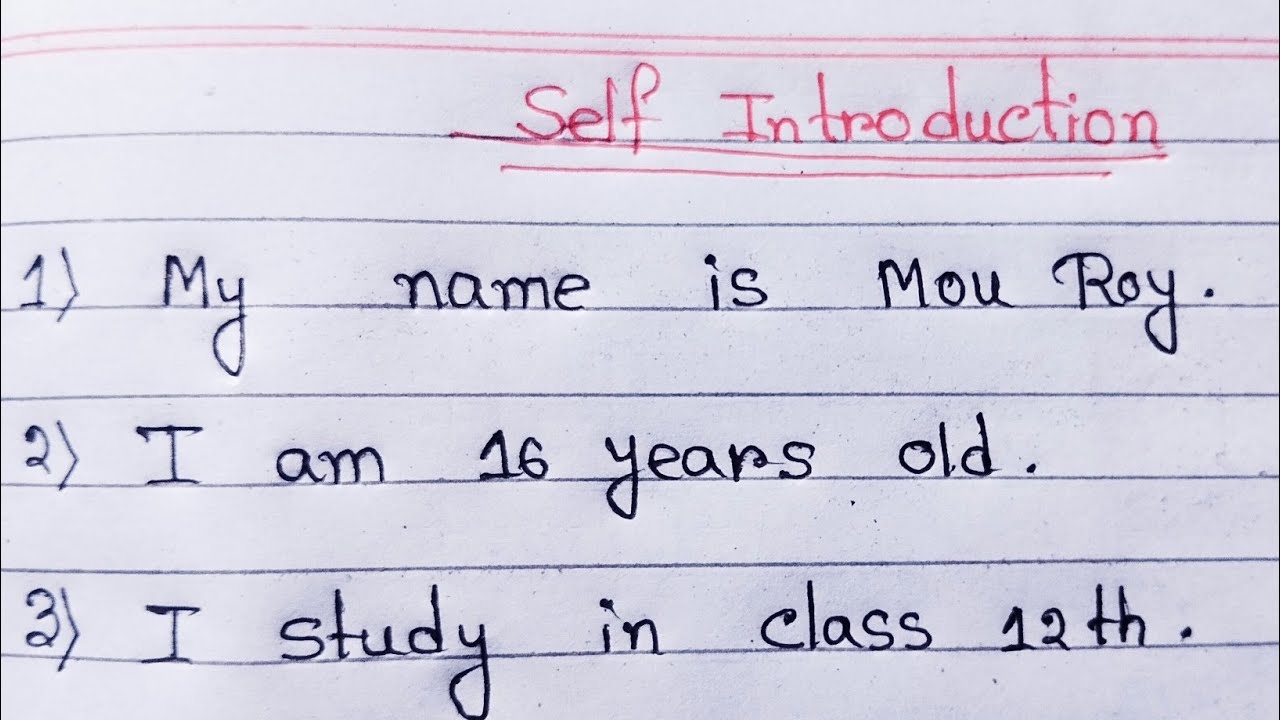 Self Introduction
1) My name is Mou Roy.
2) I am 16 years old.
3) I study in class 12th.